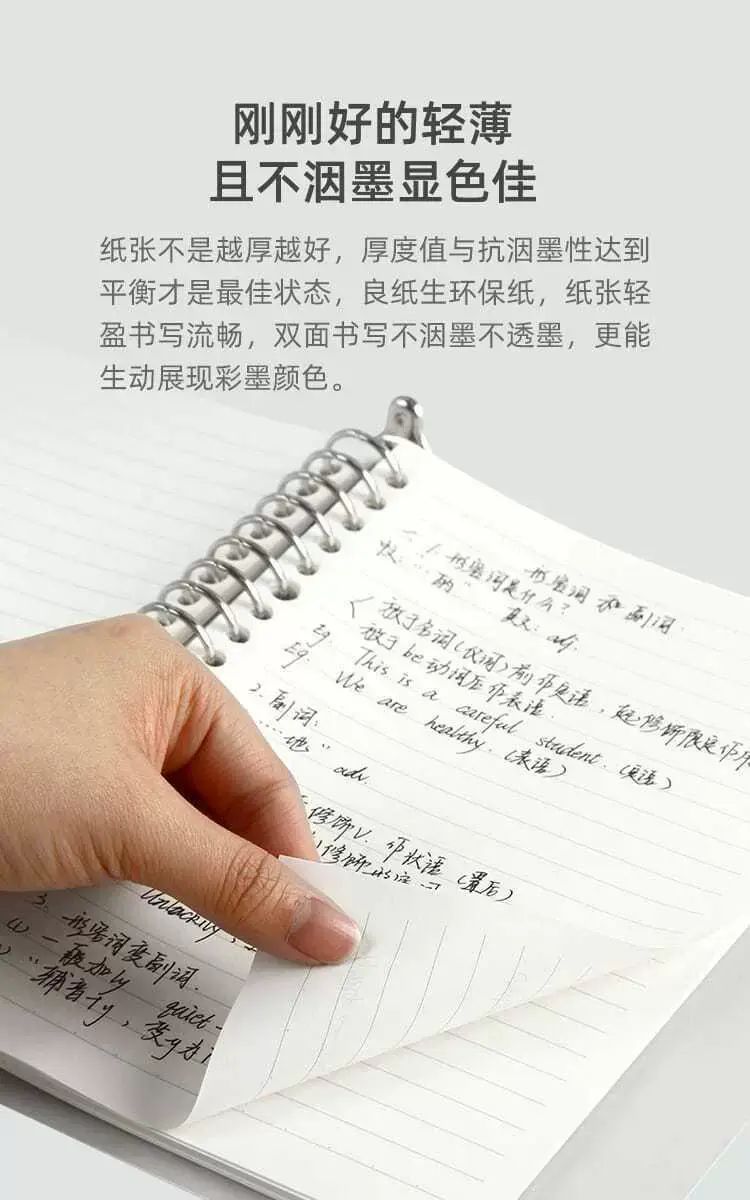 刚刚好的轻薄
且不洇墨显色佳
纸张不是越厚越好，厚度值与抗洇墨性达到
平衡才是最佳状态，良纸生环保纸，纸张轻
盈书写流畅，双面书写不洇墨不透墨，更能
生动展现彩墨颜色。
一. 形容词和副词.
1. 形容词是什么?
"的" adj.
放于名词(仪词)前作定语，起修饰限定作用
放于be动词后作表语.
Eg. This is a careful student. (定语)
Eg. We are healthy. (表语)
2. 副词:
"地" adv.
修饰V. 作状语 (置后)
修饰形容词
3. 形容词变副词.
一般加ly quiet
"辅音+y, 变y为